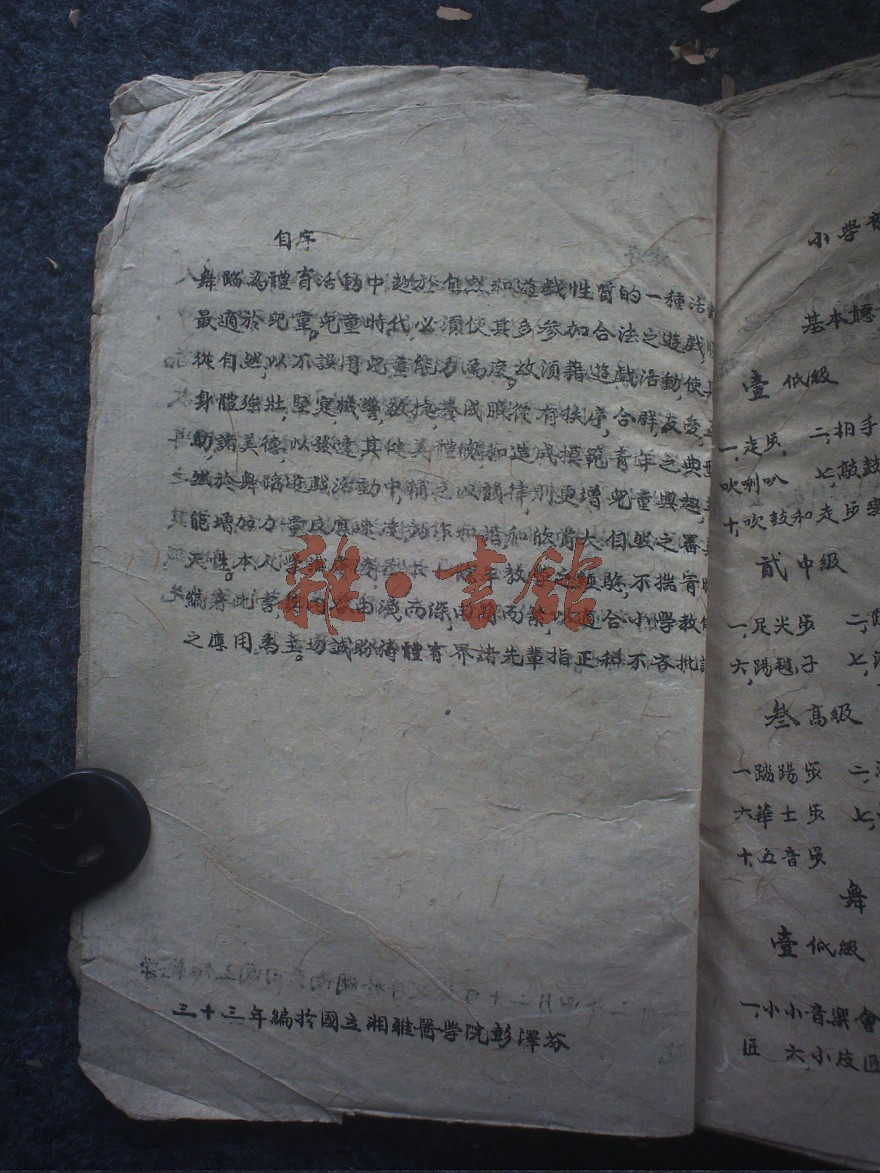 自序
舞蹈為體育活動中趨於自然和遊戲性質的一種活動
最適於兒童,兒童時代,必須使其多參加合法之遊戲,順
從自然,以不誤用兒童能力為度,故須藉遊戲活動,使其
身體強壯,堅定,機警,敏捷,養成服從有秩序,合群,友愛,
動諸美德,以發達其健美體態,和造成模範青年之典型
於舞蹈遊戲活動中,輔之以韻律,則更增兒童興趣,
能增加力量及應 速動作和諧和欣賞大自然之審美
天性。本人學 淺 十餘年教學之經驗,不揣冒昧
編纂此書,其內容由淺而深,由簡而繁,以適合小學教
之應用為主。切誠盼待體育界諸先輩指正和不吝批
三十三年編於國立湘雅醫學院彭澤芬
雜·書館
小學音
基本聽
壹 低級
一,走步, 二,拍手
吹喇叭 七,敲鼓
十,吹鼓和走步
貳 中級
一,足尖步 二,
六,踢毽子 七,
叁 高級
一踏踢步 二,
六華士步 七,
十,五音步
舞
壹 低級
一,小小音樂會
匠 六,小皮匠